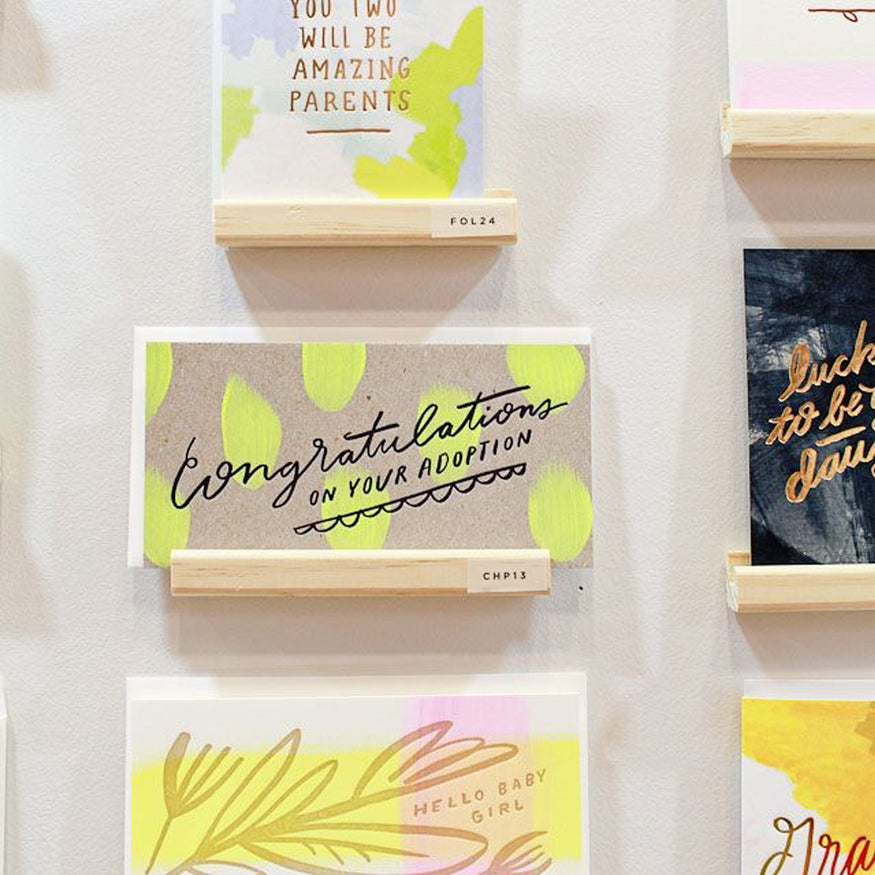 YOU TWO
WILL BE
AMAZING
PARENTS
FOL24
Congratulations
ON YOUR ADOPTION
CHP13
to be
HELLO BABY
GIRL